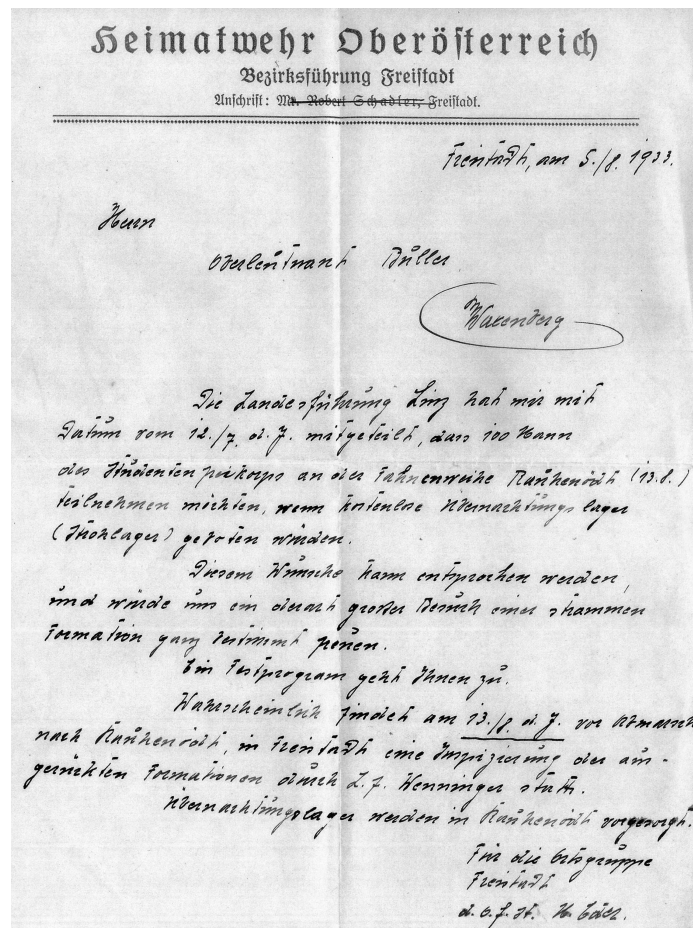 Heimatwehr Oberösterreich
Bezirksführung Freistadt
Anschrift: Mr. Robert Schadler, Freistadt.
Freistadt, am 5./8. 1933.
Herrn
Oberleutnant Büller
Waxenberg
Die Landesführung Linz hat mir mit
Datum vom 12./7. d. J. mitgeteilt, dass 100 Mann
des Studentenfreikorps an der Fahnenweihe Rauhenödt (13.8.)
teilnehmen möchten, wenn kostenlose Übernachtungslager
(Strohlager) geboten würden.
Diesem Wunsche kann entsprochen werden,
und würde uns ein derart großer Besuch einer strammen
Formation ganz bestimmt freuen.
Ein Festprogram geht Ihnen zu.
Wahrscheinlich findet am 13./8. d. J. vor Abmarsch
nach Rauhenödt, in Freistadt eine Inspizierung der aus-
gerückten Formationen durch L. F. Wenninger statt.
Übernachtungslager werden in Rauhenödt vorgesorgt.
Für die Ortsgruppe
Freistadt
d. O. F. St. H. Eder.